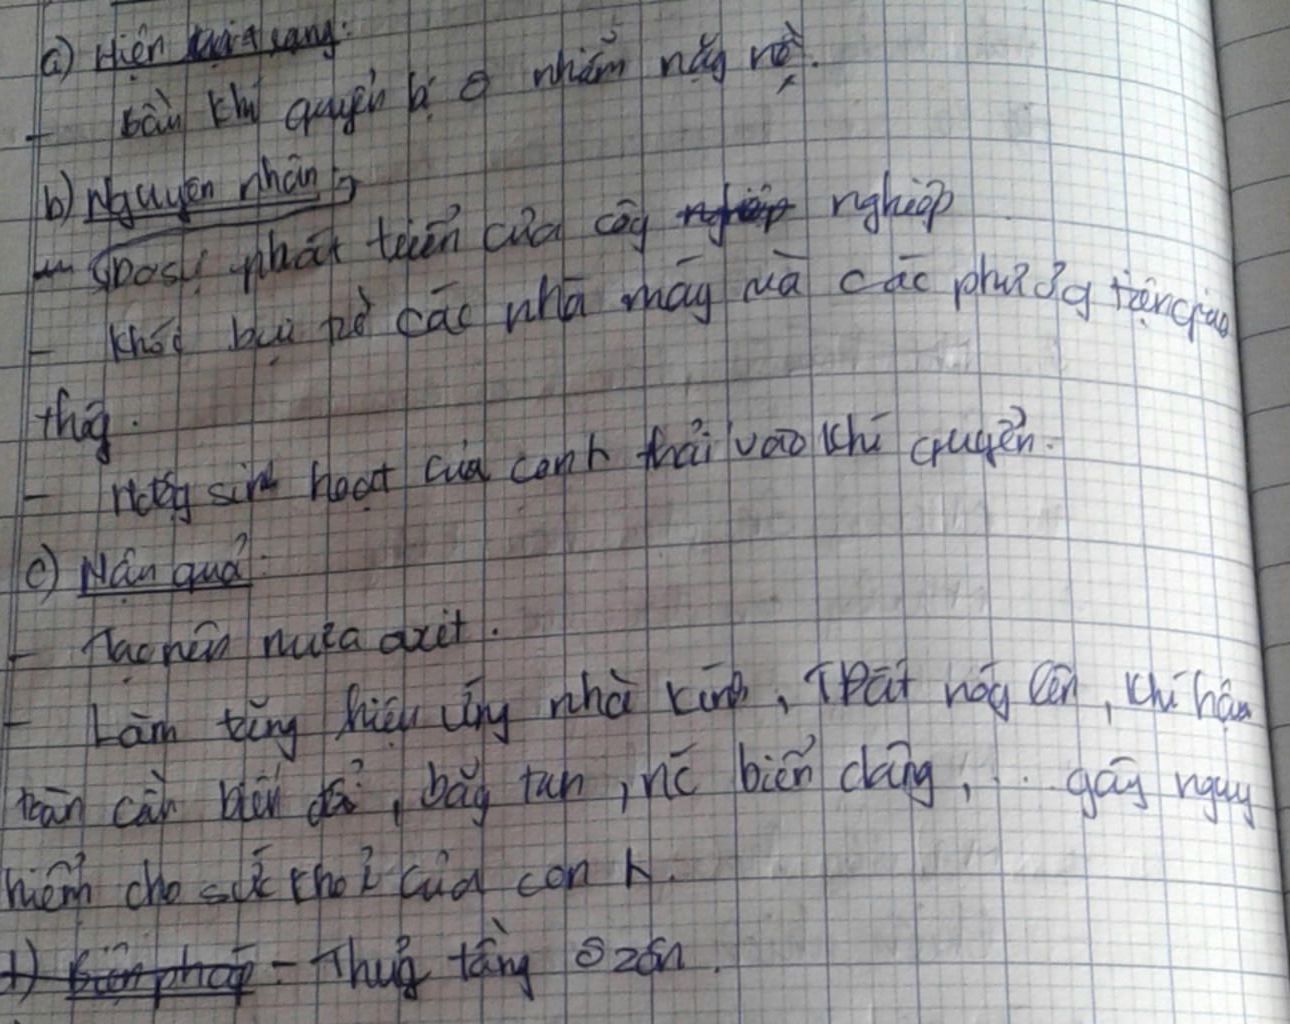 a) Hiện trạng:
- bầu khí quyển bị ô nhiễm nặg nề.
b) Nguyên nhân:
- Do sự phát triển của côg nghiệp
- khói bụi từ các nhà máy và các phươg tiện giao
thôg.
- sinh hoạt của con h thải vào khí quyển.
c) Hậu quả:
- Tạo nên mưa axit.
- Làm tăng hiệu ứng nhà kính, TĐất nóg lên, khí hậu
toàn cầu biến đổi, băg tan, nc biển dâng, ... gây nguy
hiểm cho sức khoẻ của con h.
d) Biện pháp - Thủg tầng ô zôn.